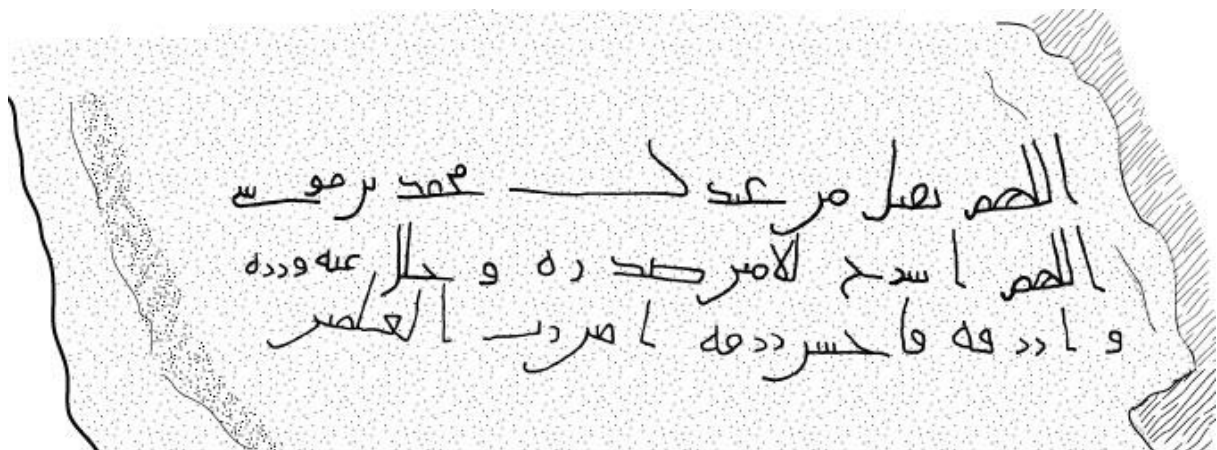 اللهم تقبل من عبدك محمد بن موسى
اللهم اشرح صدره و عنه وزره
و ارزقه فاحسن رزقه امين رب العلمين